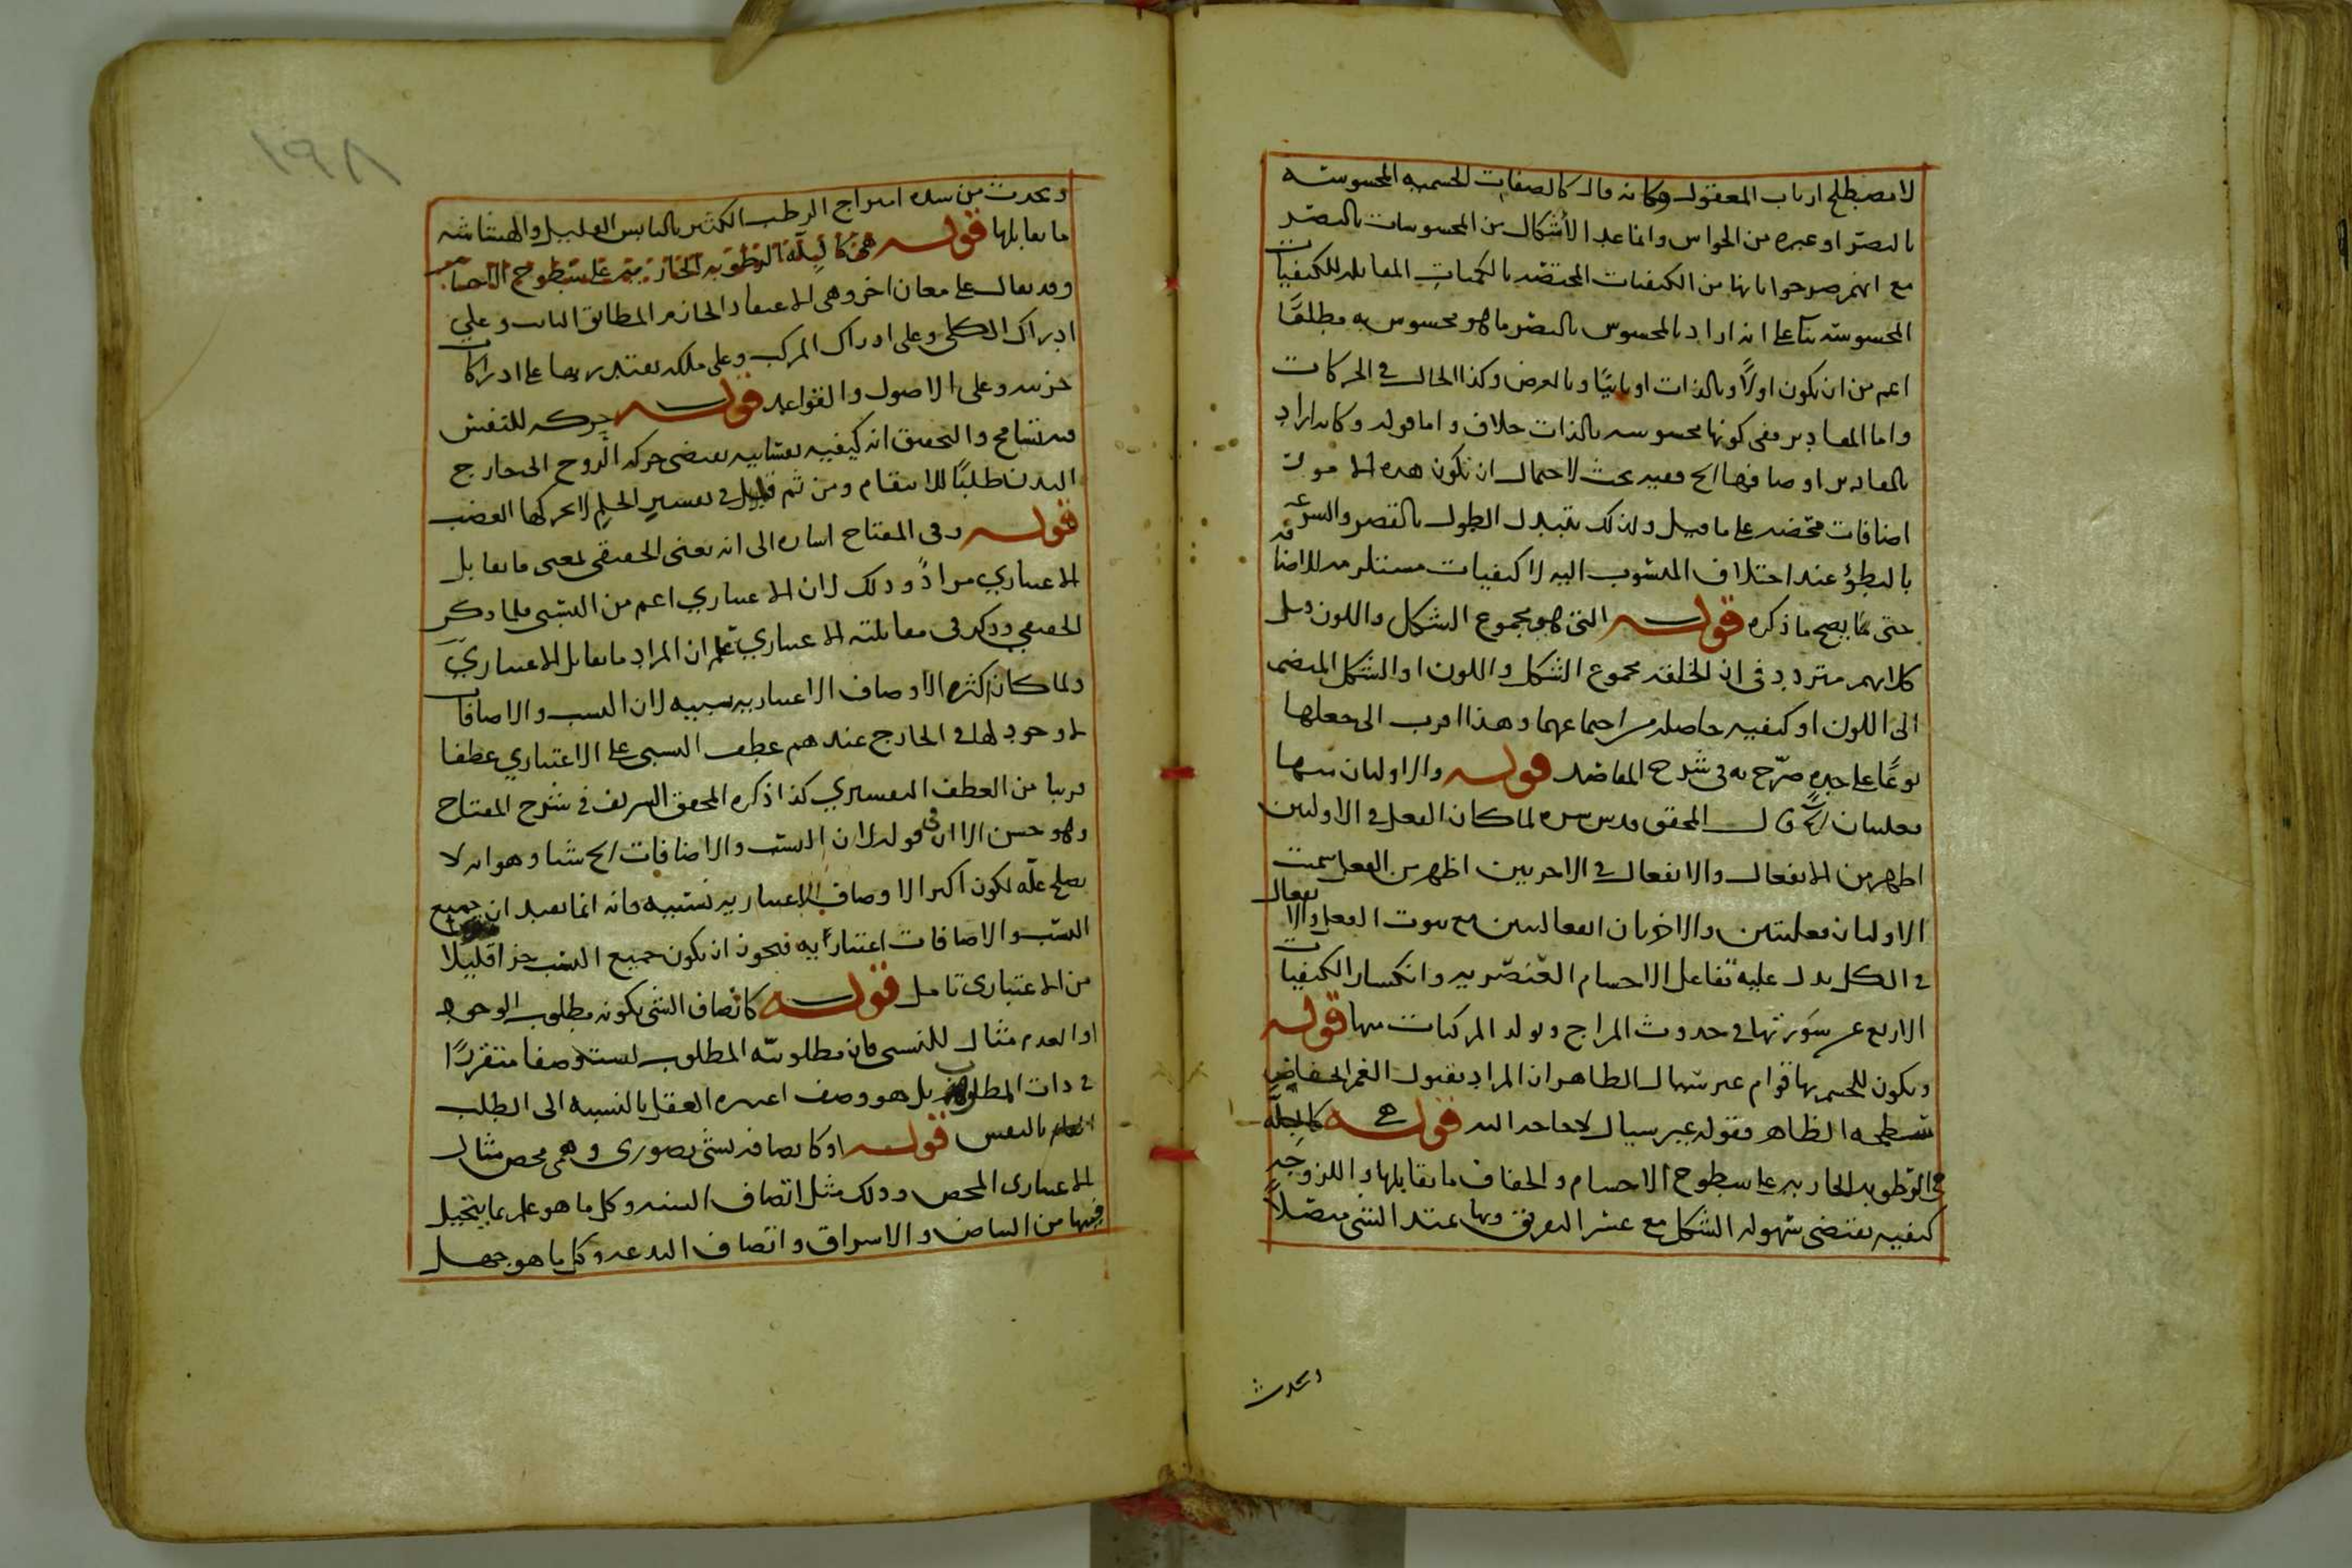 لا مصطلح ارباب المعقول وكانه قال كالصفات الجسمية المحسوسة
بالبصر او غيره من الحواس وانما عد الأشكال من المحسوسات بالبصر
مع انهم صرحوا بانها من الكيفيات المختصة بالكميات المقابلة للكيفيات
المحسوسة بناء على انه اراد بالمحسوس بالبصر ما هو محسوس به مطلقًا
اعم من ان يكون اولًا وبالذات او ثانيًا وبالعرض وكذا الحال في الحركات
واما المقادير ففي كونها محسوسة بالذات خلاف واما قوله وكانه اراد
بالمقادير اوصافها الخ ففيه بحث لاحتمال ان تكون هذه الامور
اضافات محضة على ما قيل ولذلك يتبدل الطول بالقصر والسرعة
بالبطؤ عند اختلاف المنسوب اليه لا كيفيات مستلزمة للاضافة
حتى يصح ما ذكره قوله التي هو مجموع الشكل واللون قيل
كلامهم متردد في ان الخلقة مجموع الشكل واللون او الشكل المنضم
الى اللون او كيفية حاصلة من اجتماعهما وهذا اقرب الى جعلها
نوعًا على حدة صرّح به في شرح المقاصد قوله والاوليان منها
فعليتان الخ قال المحقق قدس سره لما كان الفعل في الاوليين
اظهر من الانفعال والانفعال في الاخريين اظهر من الفعل سميت
الاوليان فعليتين والاخريان انفعاليتين مع ثبوت الفعل والانفعال
في الكل يدل عليه تفاعل الاجسام العنصرية وانكسار الكيفيات
الاربع عن سَورتها في حدوث المزاج وتولد المركبات منها قوله
ويكون للجسم بها قوام غير سيال الظاهر ان المراد بقبول الغمز انخفاض
سطحه الظاهر فقوله غير سيال لا حاجة اليه قوله كالبلة
هي الرطوبة الجارية على سطوح الاجسام والجفاف ما يقابلها واللزوجة
كيفية تقتضي سهولة الشكل مع عسر التفريق وبها يمتد الشئ متصلًا
ويحدث
١٩٨
ويحدث من شدة امتزاج الرطب الكثير باليابس القليل والهشاشة
ما يقابلها قوله هي كالبلة الرطوبة الجارية على سطوح الاجسام
وقد يقال على معان اخر وهي الاعتقاد الجازم المطابق الثابت وعلى
ادراك الكلي وعلى ادراك المركب وعلى ملكة يقتدر بها على ادراكات
جزئية وعلى الاصول والقواعد قوله حركة للنفس
فيه تسامح والتحقيق انه كيفية نفسانية تقتضي حركة الروح الى خارج
البدن طلبًا للانتقام ومن ثم قيل في تفسير الحلم لا يحركها الغضب
قوله وفي المفتاح اشارة الى انه يعني الحقيقي لمعنى ما يقابل
الاعتباري مرادًا وذلك لان الاعتباري اعم من النسبي فلما ذكر
الحقيقي وذكر في مقابلته الاعتباري علم ان المراد ما يقابل الاعتباري
ولما كان اكثر الاوصاف الاعتبارية نسبية لان النسب والاضافات
لا وجود لها في الخارج عندهم عطف النسبي على الاعتباري عطفا
قريبا من العطف التفسيري كذا ذكره المحقق الشريف في شرح المفتاح
وهو حسن الا ان في قوله لان النسب والاضافات الخ شيئا وهو انه لا
يصلح علّة لكون اكثر الاوصاف الاعتبارية نسبية فانه انما يفيد ان جميع
النسب والاضافات اعتبارية فيجوز ان يكون جميع النسب جزأ قليلًا
من الاعتباري تامل قوله كاتصاف الشئ بكونه مطلوب الوجود
او العدم مثال للنسبي فان مطلوبية المطلوب ليست وصفا متقررًا
في ذات المطلوب بل هو وصف اعتبره العقل بالنسبة الى الطلب
القائم بالنفس قوله او كاتصافه بشئ تصوري وهمي محض مثال
الاعتباري المحض وذلك مثل اتصاف السنة وكل ما هو علم بما يتخيل
فيها من البياض والاشراق واتصاف البدعة وكل ما هو جهل